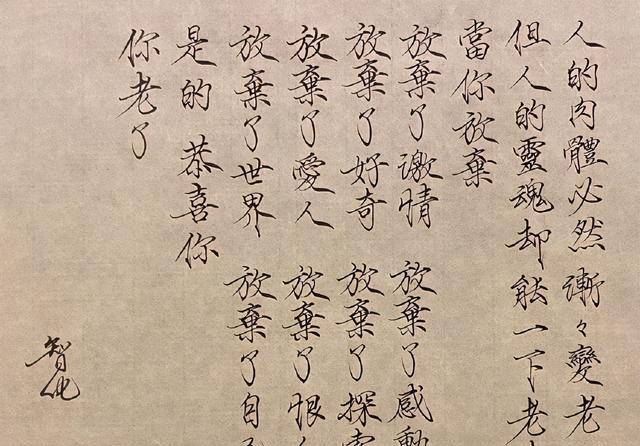 人的肉體必然漸々變老
但人的靈魂却能一下老
當你放棄
放棄了激情 放棄了感動
放棄了好奇 放棄了探索
放棄了愛人 放棄了恨
放棄了世界 放棄了自
是的 恭喜你
你老了
智也